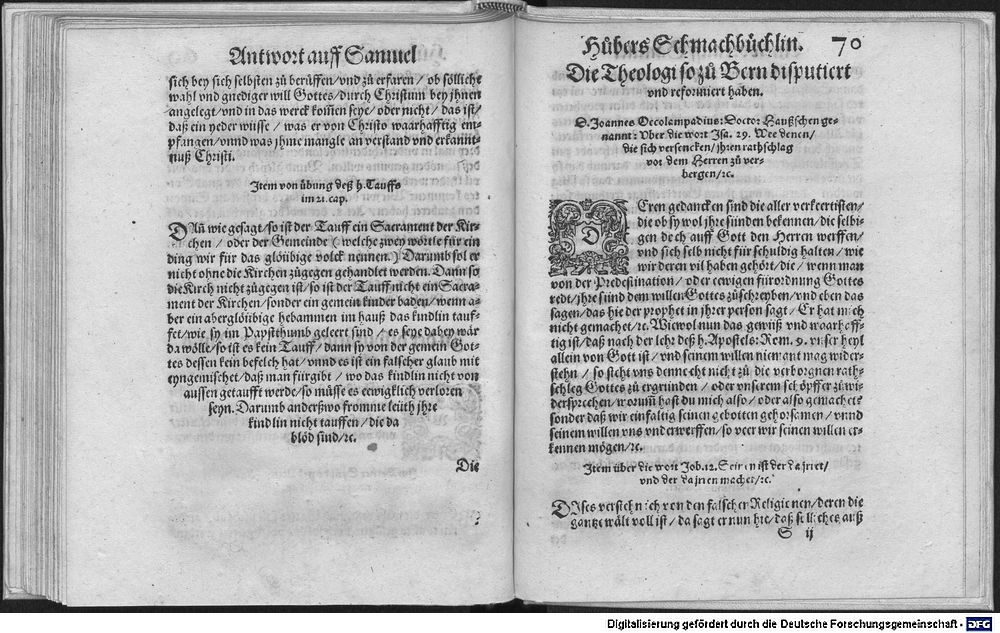 Antwort auff Samuel
sich bey sich selbsten zů berüffen/vnd zů erfaren/ ob söllliche
wahl vnd gnediger will Gottes/durch Christum bey jhnen
angelegt/vnd in das werck kom̃en seye/oder nicht/ das ist/
daß ein yeder wüsse/ was er von Christo waarhafftig em-
pfangen/vnnd was jhme mangle an verstand vnd erkannt-
nuß Christi.
Item von übung deß h. Tauffs
im 21. cap.
DAñ wie gesagt/so ist der Tauff ein Sacrament der Kir-
chen/ oder der Gemeinde (welche zwey wörtle für ein
ding wir für das glöubige volck nennen.) Darumb sol er
nicht ohne die Kirchen zůgegen gehandlet werden. Dann so
die Kirch nicht zůgegen ist/so ist der Tauff nicht ein Sacra-
ment der Kirchen/sonder ein gemein kinder baden/wenn a-
ber ein aberglöubige hebammen im hauß das kindlin tauf-
fet/wie sy im Papstthumb geleert sind/ es seye dahey wär
da wölle/so ist es kein Tauff/dann sy von der gemein Got-
tes dessen kein befelch hat/vnnd es ist ein falscher glaub mit
eyngemischet/daß man fürgibt/ wo das kindlin nicht von
aussen getaufft werde/so müsse es eewigklich verloren
seyn. Darumb anderßwo fromme leüth jhre
kindlin nicht tauffen/die da
blöd sind/ꝛc.
Die
Hůbers Schmachbüchlin. 70
Die Theologi so zů Bern disputiert
vnd reformiert haben.
D. Joannes Oecolampadius: Doctor Haußschen ge-
nannt: Vber die wort Jsa. 29. Wee denen/
die sich versencken/jhren rathschlag
vor dem Herren zů ver-
bergen/ꝛc.
DEren gedancken sind die aller verkeertisten/
die ob sy wol jhre sünden bekennen/die selbi-
gen doch auff Gott den Herren werffen/
vnd sich selb nicht für schuldig halten/ wie
wir deren vil haben gehört/die/ wenn man
von der Predestination/ oder eewigen fürordnung Gottes
redt/jhre sünd dem willen Gottes zůschreyben/vnd eben das
sagen/das hie der prophet in jhrer person sagt/ Er hat mich
nicht gemachet/ꝛc. Wiewol nun das gewüß vnd waarhaff-
tig ist/daß nach der lehr deß h. Apostels: Rom. 9. vnser heyl
allein von Gott ist/ vnd seinem willen niemant mag wider-
stehn/ so steht vns dennocht nicht zů/ die verborgnen rath-
schleg Gottes zů ergründen/ oder vnserem schöpffer zů wi-
dersprechen/worum̃ hast du mich also/ oder also gemachet:
sonder daß wir einfaltig seinen gebotten gehorsamen/ vnnd
seinem willen vns vnderwerffen/so veer wir seinen willen er-
kennen mögen/ꝛc.
Item über die wort Job. 12.
vnd der
DIses verstehn ich von den falschen Religionen/deren die
gantze wält voll ist/ da sagt er nun hie/daß auß
S ij
Digitalisierung gefördert durch die Deutsche Forschungsgemeinschaft - DFG